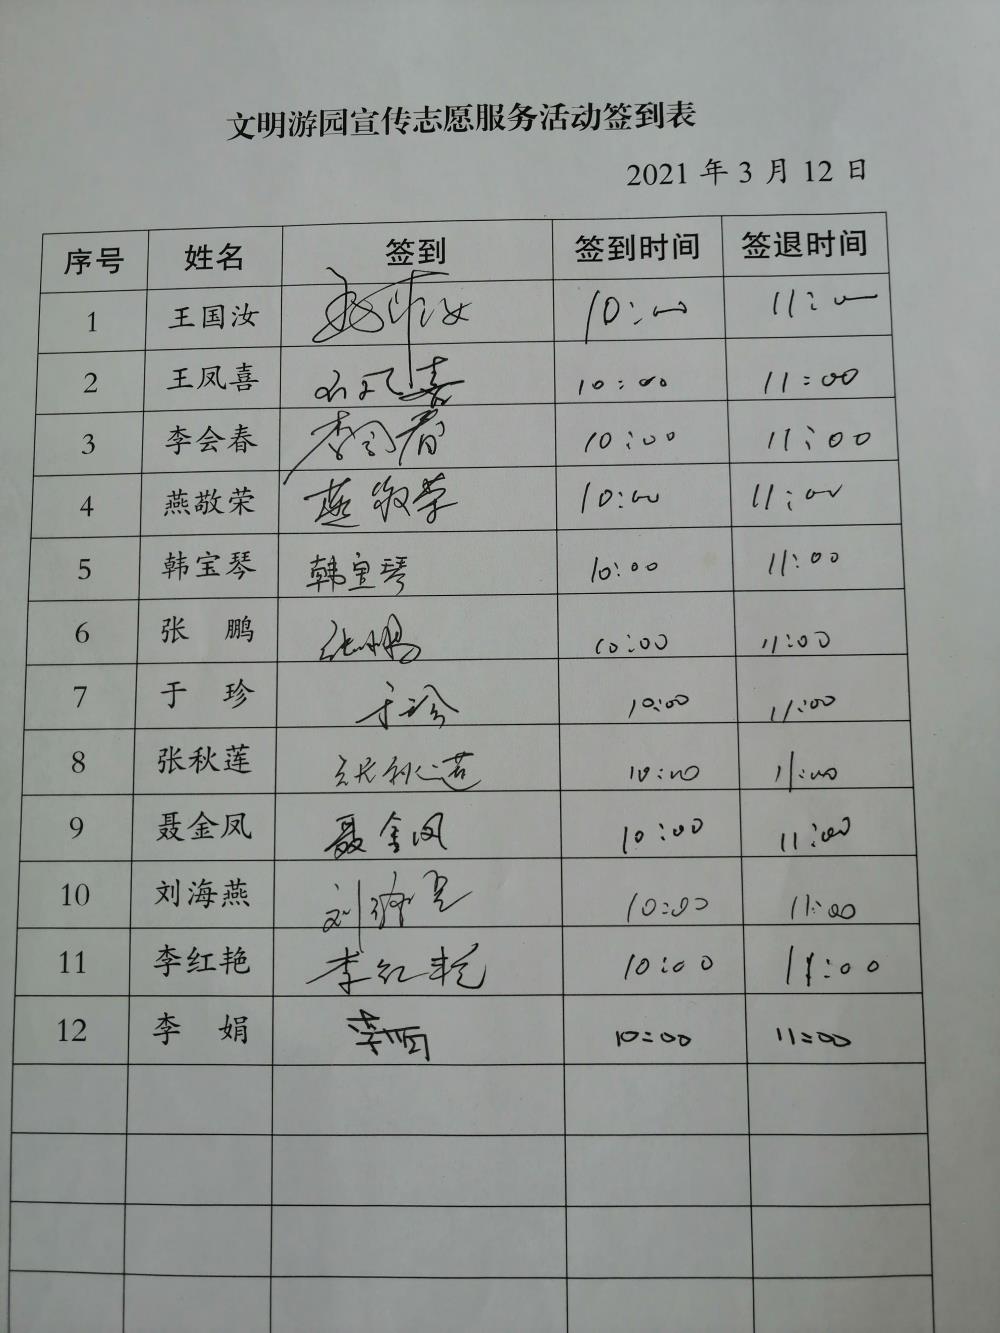 文明游园宣传志愿服务活动签到表
2021 年 3 月 12 日
序号 姓名 签到 签到时间 签退时间
1 王国汝 10:00 11:00
2 王凤喜 10:00 11:00
3 李会春 李会春 10:00 11:00
4 燕敬荣 燕敬荣 10:00 11:00
5 韩宝琴 韩宝琴 10:00 11:00
6 张 鹏 张鹏 10:00 11:00
7 于 珍 于珍 10:00 11:00
8 张秋莲 张秋莲 10:00 11:00
9 聂金凤 聂金凤 10:00 11:00
10 刘海燕 10:00 11:00
11 李红艳 李红艳 10:00 11:00
12 李 娟 10:00 11:00